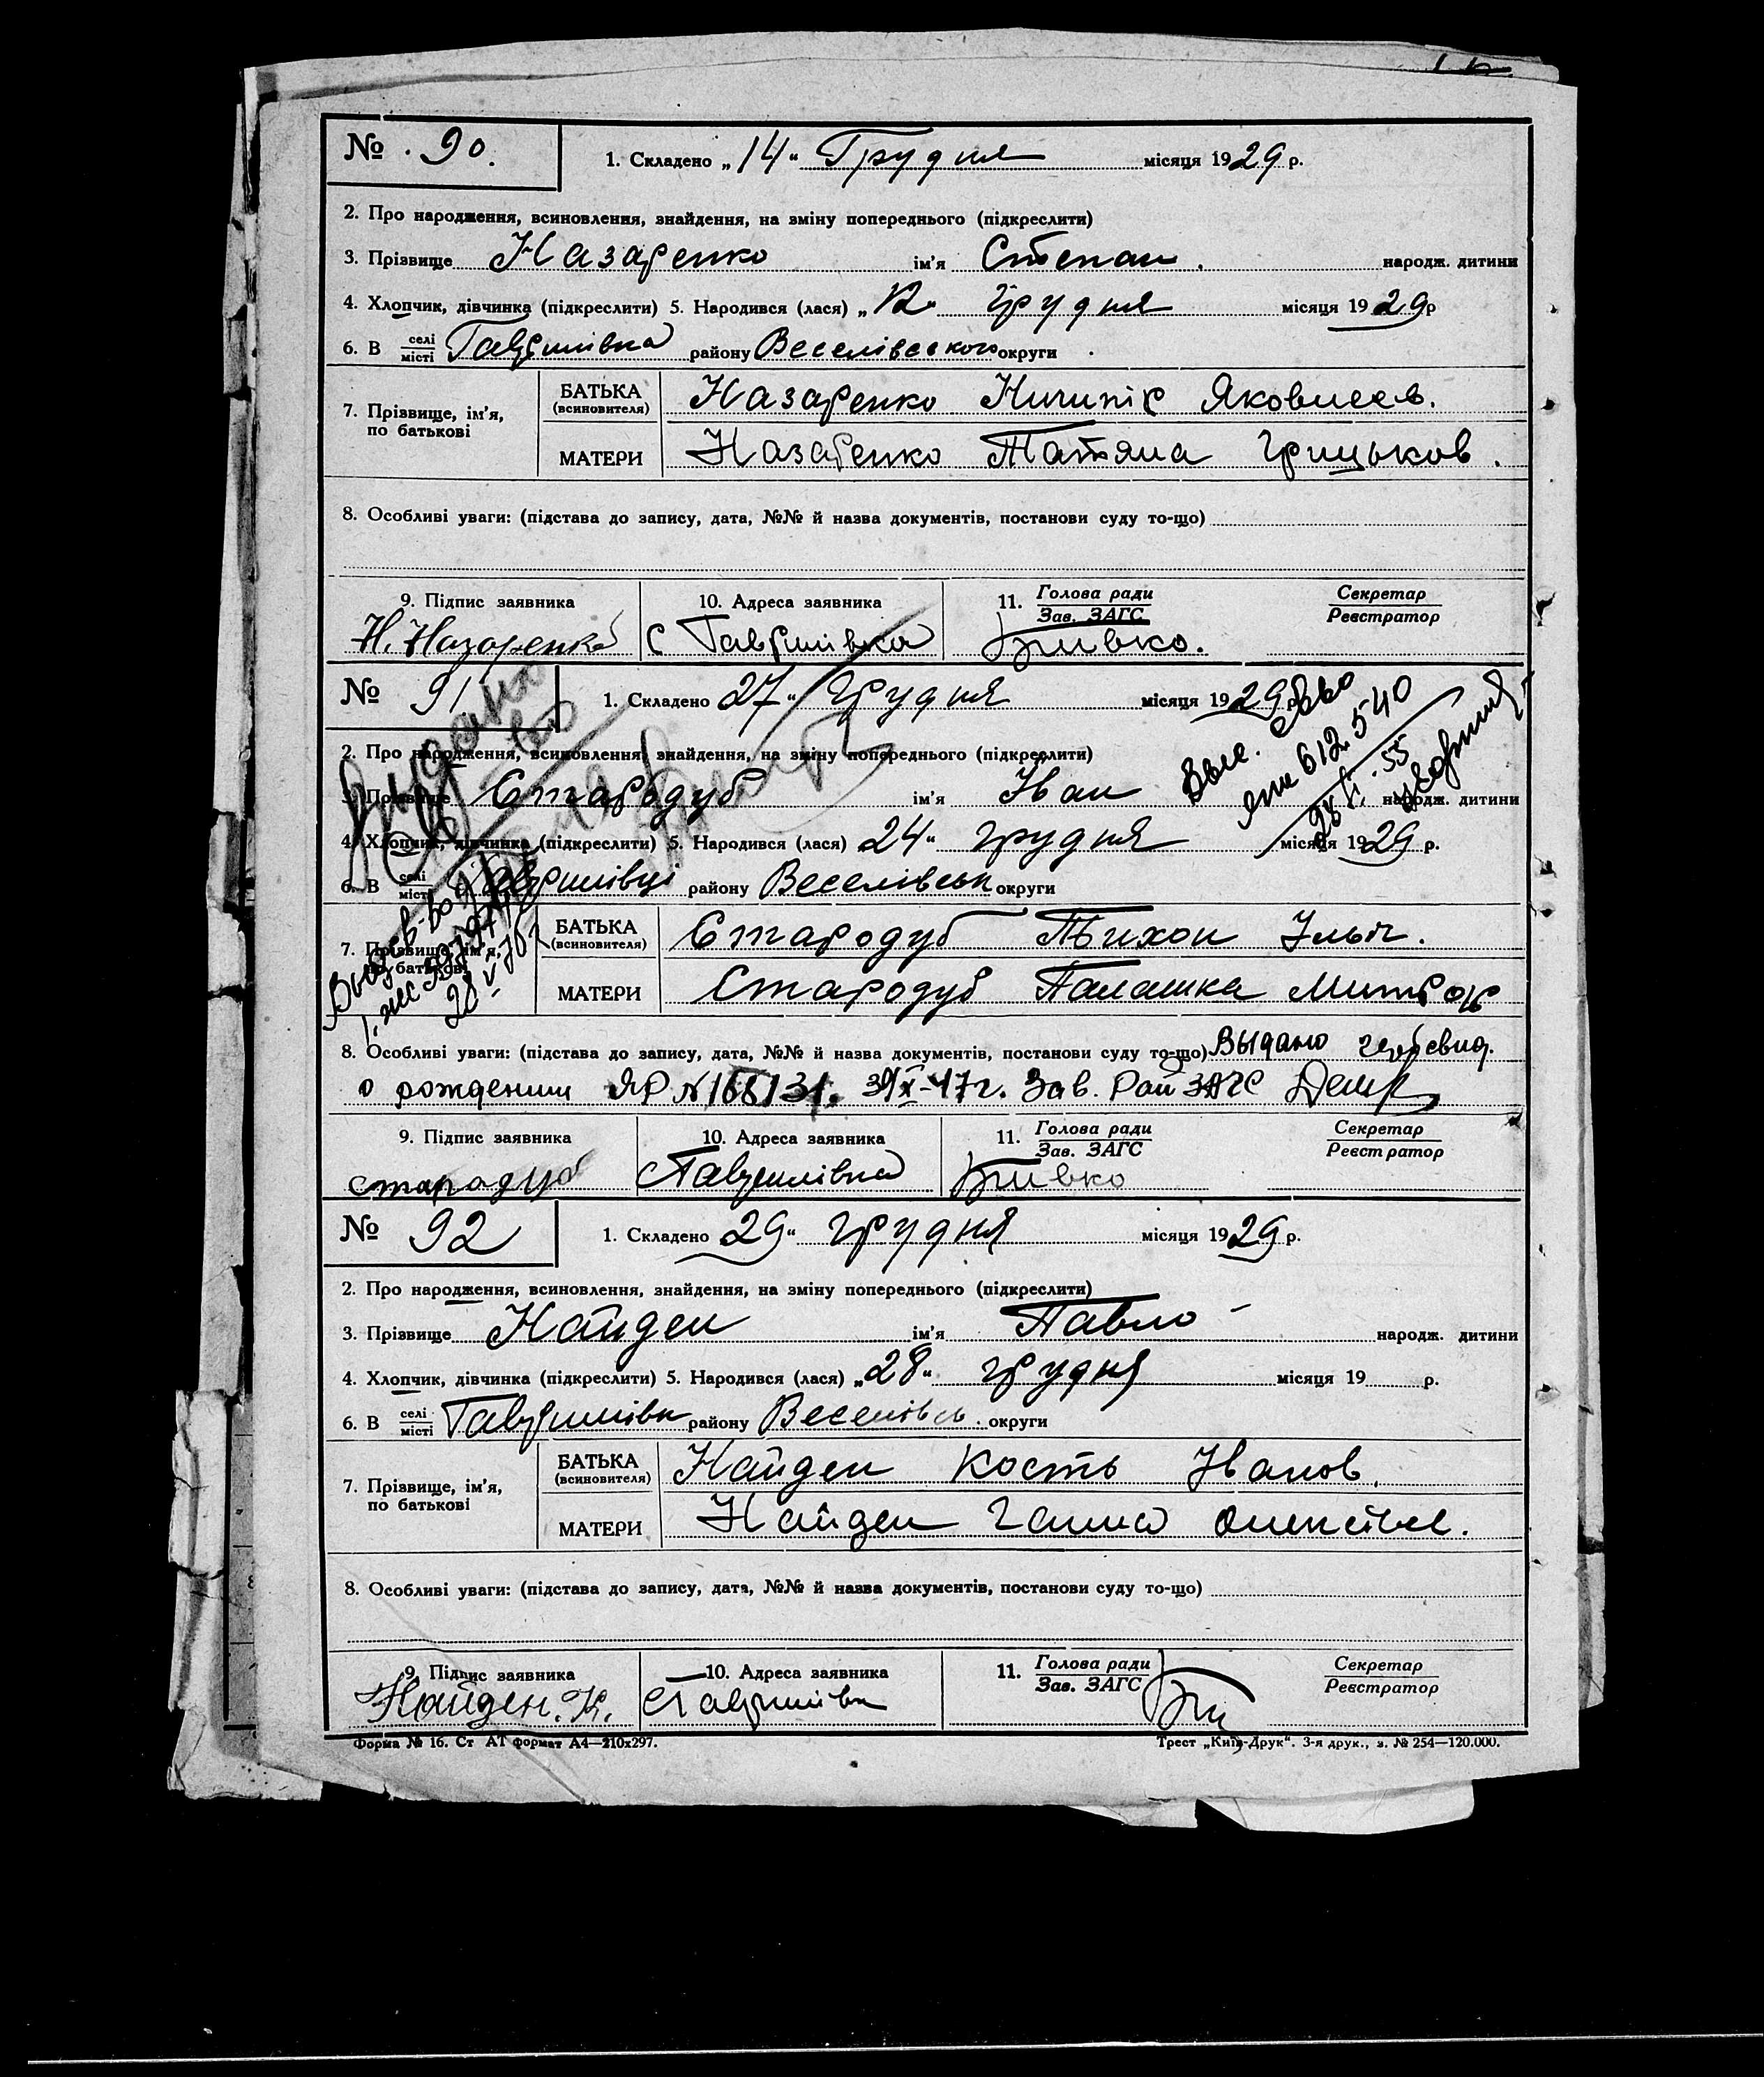 № 90. 1. Складено „14“ Грудня місяця 1929 р.
2. Про народження, всиновлення, знайдення, на зміну попереднього (підкреслити)
3. Прізвище Назаренко ім'я Степан. народж. дитини
4. Хлопчик, дівчинка (підкреслити) 5. Народився (лася) „12“ Грудня місяця 1929 р
6. В селі місті Гаврилівка району Веселівського округи
7. Прізвище, ім'я, по батькові
БАТЬКА (всиновителя) Назаренко Ничипір Яковлев.
МАТЕРИ Назаренко Татяна Грицьков.
8. Особливі уваги: (підстава до запису, дата, №№ й назва документів, постанови суду то-що)
9. Підпис заявника 10. Адреса заявника 11. Голова ради Зав. ЗАГС Секретар Реєстратор
Н. Назаренко с Гаврилівка
№ 91 1. Складено 27“ Грудня місяця 1929 р.
2. Про народження, всиновлення, знайдення, на зміну попереднього (підкреслити)
3. Прізвище Стародуб ім'я Іван народж. дитини
4. Хлопчик, дівчинка (підкреслити) 5. Народився (лася) 24“ грудня місяця 1929 р.
6. В селі місті Гаврилівці району Веселівськ округи
612540
7. Прізвище, ім'я, по батькові
БАТЬКА (всиновителя) Стародуб Тихон Ильіч.
МАТЕРИ Стародуб Палашка Митроф
8. Особливі уваги: (підстава до запису, дата, №№ й назва документів, постанови суду то-що) Выдано
о рождении ЯР № 168131. Зав. Рай ЗАГС
9. Підпис заявника 10. Адреса заявника 11. Голова ради Зав. ЗАГС Секретар Реєстратор
стародуб с Гаврилівка
№ 92 1. Складено 29“ грудня місяця 1929 р.
2. Про народження, всиновлення, знайдення, на зміну попереднього (підкреслити)
3. Прізвище Найден ім'я Павло народж. дитини
4. Хлопчик, дівчинка (підкреслити) 5. Народився (лася) „28“ грудня місяця 19 р.
6. В селі місті Гаврилівк району Веселівсь. округи
7. Прізвище, ім'я, по батькові
БАТЬКА (всиновителя) Найден Кость Иванов.
МАТЕРИ Найден Ганна Олексіівн.
8. Особливі уваги: (підстава до запису, дата, №№ й назва документів, постанови суду то-що)
9. Підпис заявника 10. Адреса заявника 11. Голова ради Зав. ЗАГС Секретар Реєстратор
Найден. К. с Гаврилівк
Форма № 16. Ст АТ формат А4—210х297. Трест „Київ-Друк“. 3-я друк., з. № 254—120.000.